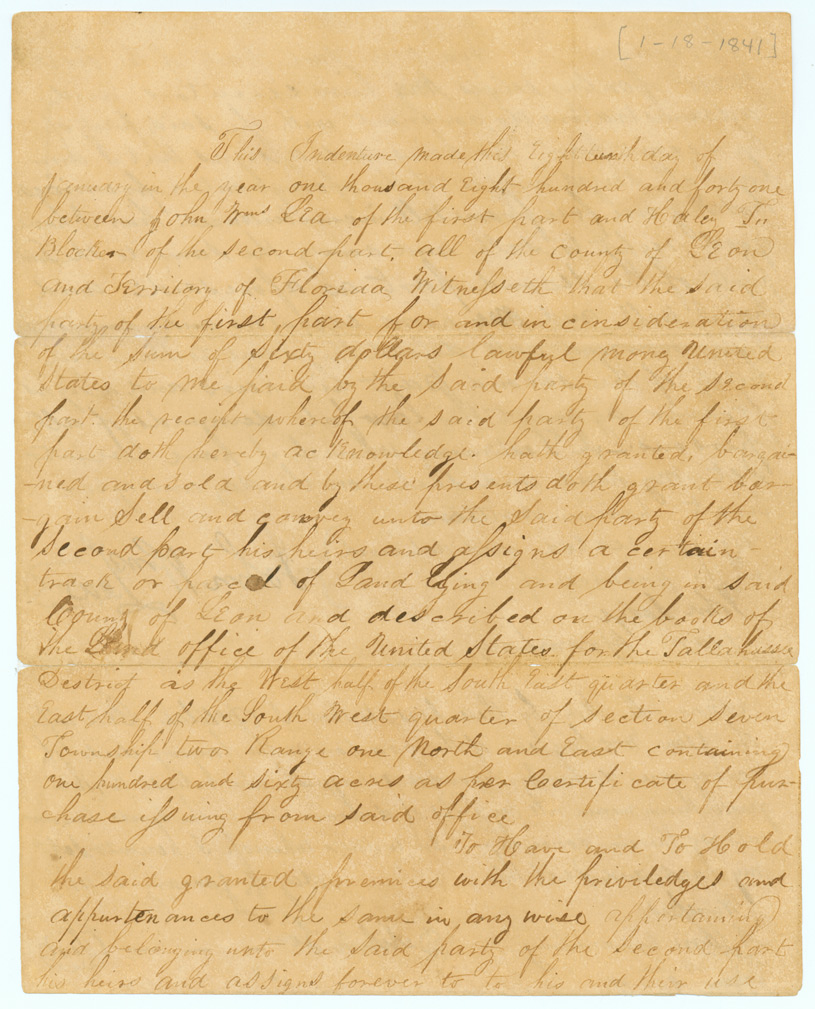 [1-18-1841]
This Indenture made this Eighteenth day of
January in the year one thousand Eight hundred and forty one
between John Wms Lea of the first part and Haley T
Blocker of the second part, all of the county of Leon
and Territory of Florida, Witnesseth that the said
party of the first part for and in cinsideration
of the sum of sixty dollars lawful money United
States to me paid by the said party of the second
part. the receipt whereof the said party of the first
part doth hereby acknowledge. hath granted, bargai-
-ned and sold and by these presents doth grant bar-
-gain Sell and convey unto the Said party of the
Second part his heirs and assigns a certain-
track or parcel of Land lying and being in said
County of Leon and described on the books of
the Land office of the United States for the Tallahassee
District as the West half of the South East quarter and the
East half of the South West quarter of section seven
Township two Range one North and East containing
one hundred and sixty acres as per Certificate of pur-
chase issuing from said office
To Have and To Hold
the said granted premices with the priviledges and
appurtenances to the same in any wise appertaining
and belonging unto the said party of the second part
his heirs and assigns forever to to his and their use